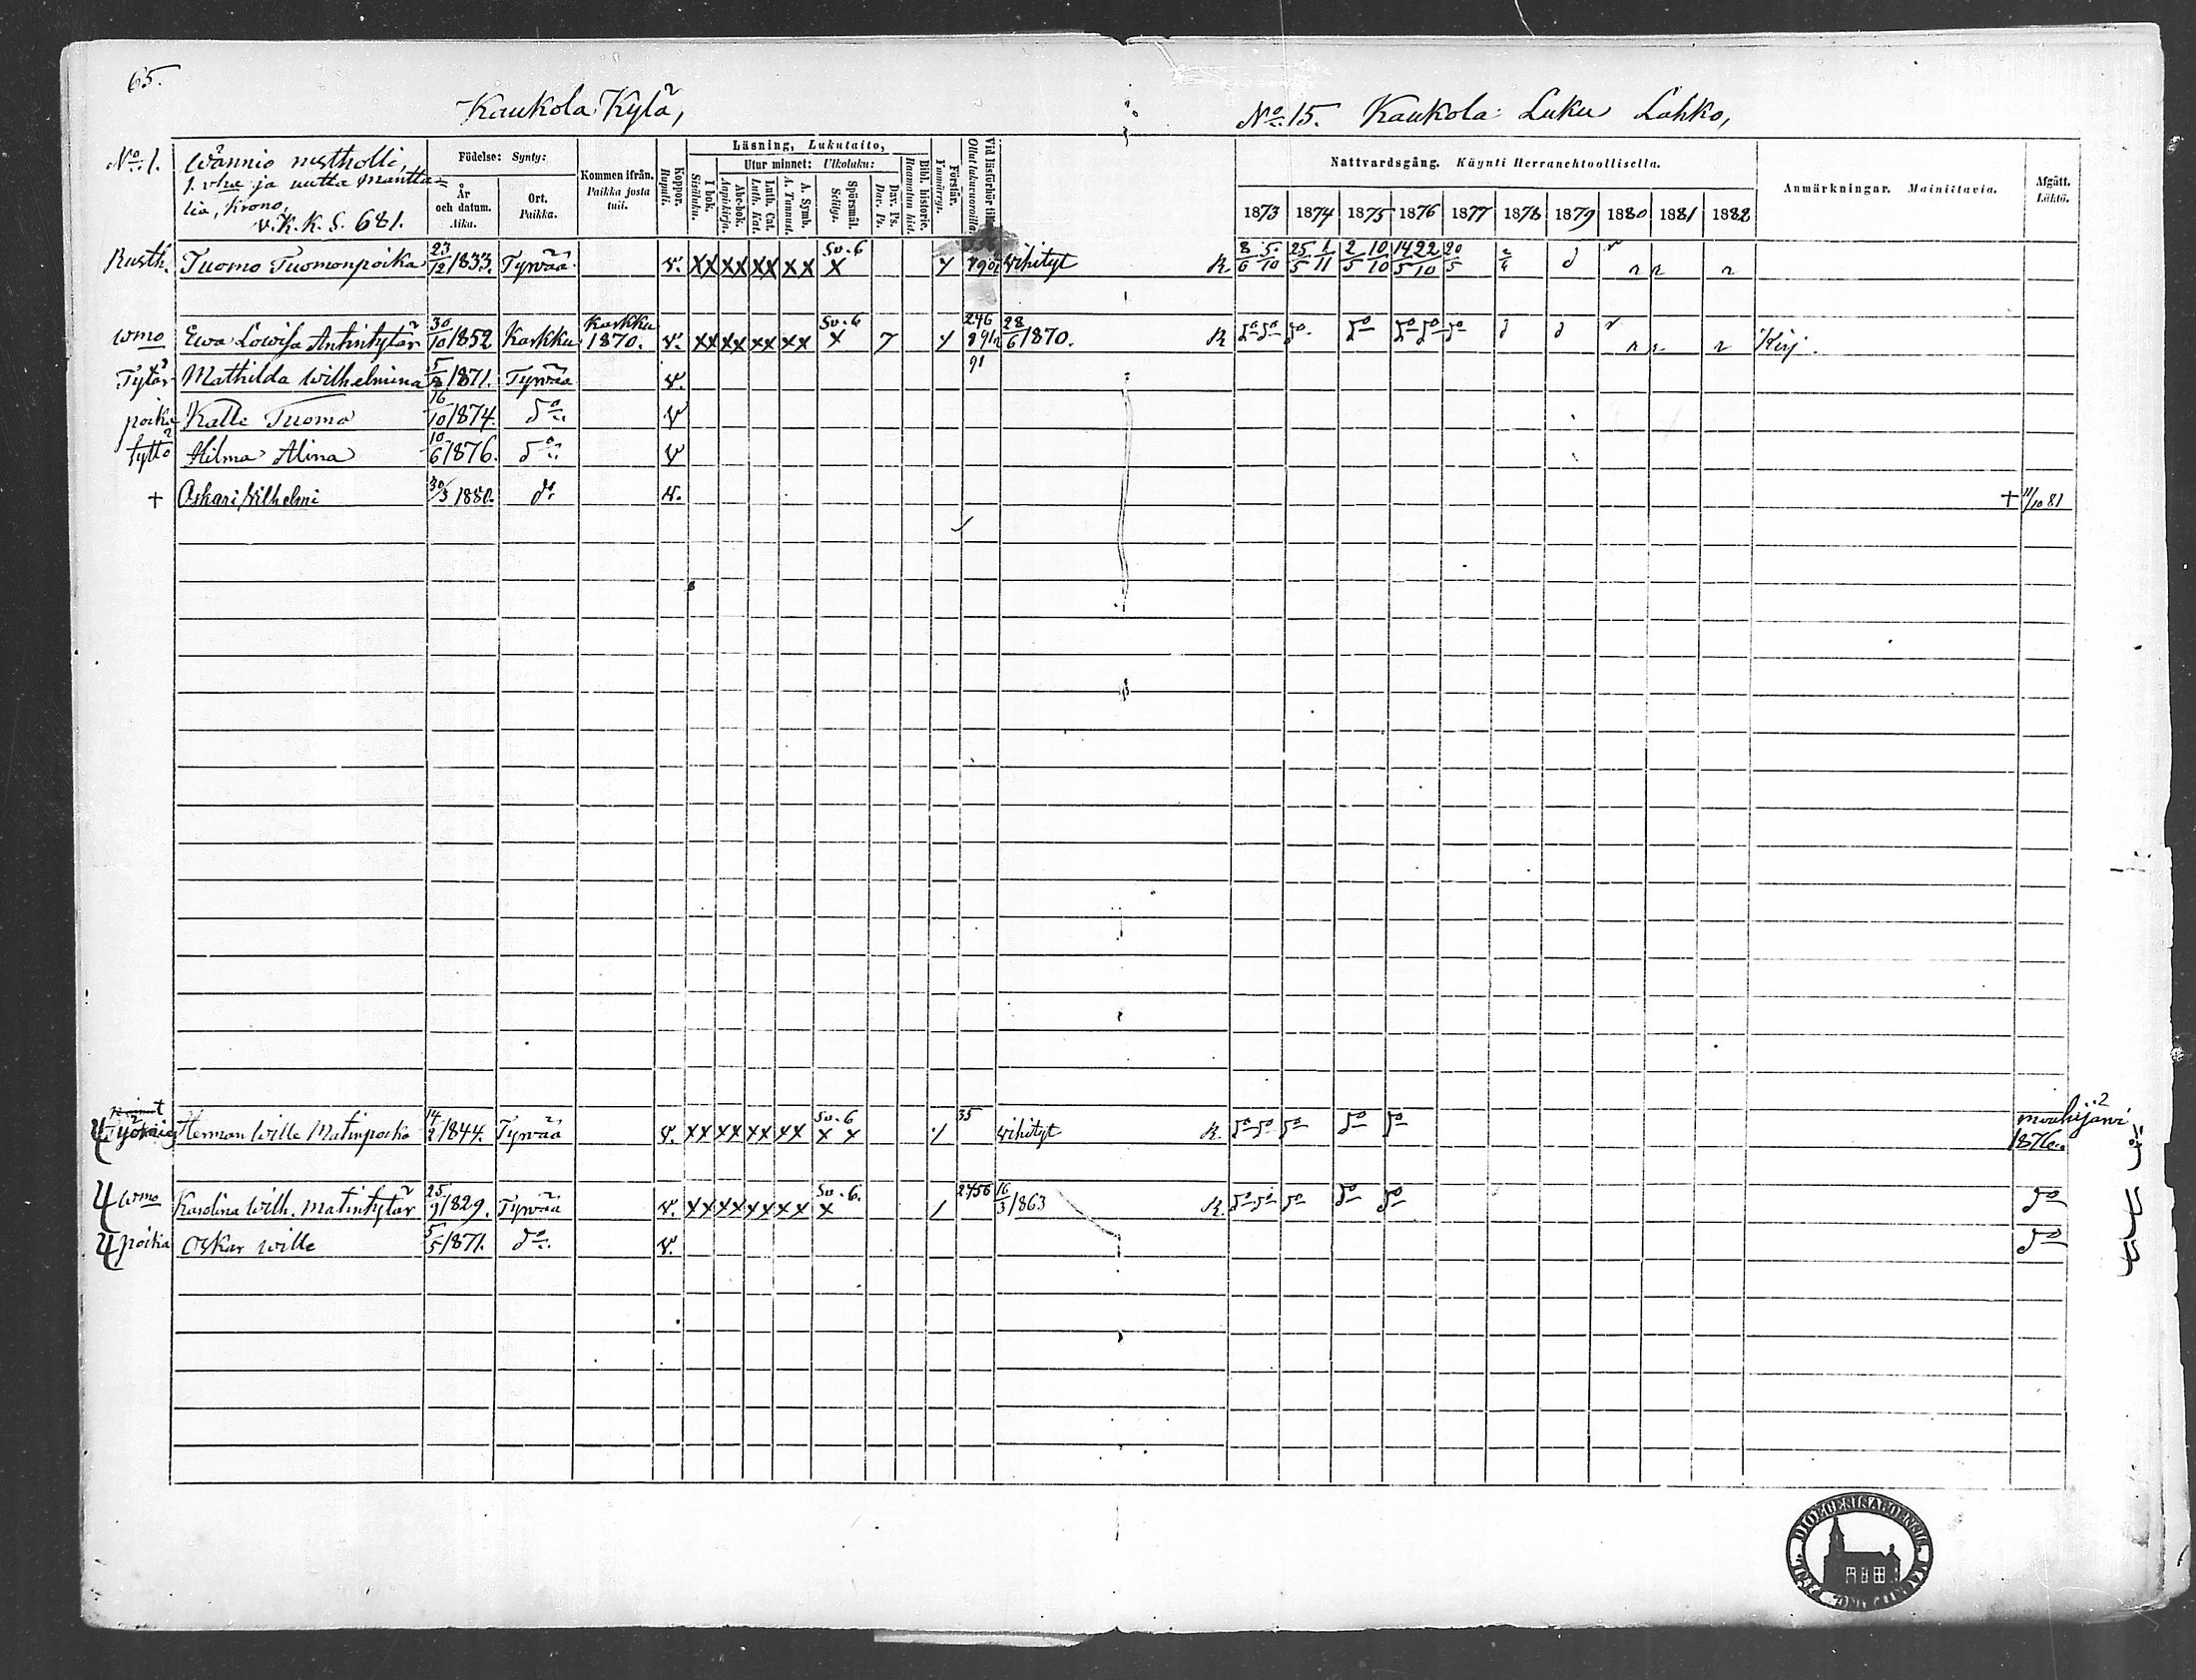 65.
Kaukola Kylä,
No 15. Kaukola Luku Lahko,
No 1. Wännio rustholli,
1. vka ja uutta mantta=
lia, Krono,
v. K. K. S. 681.
Födelse: Synty:
År och datum. Aika.
Ort. Paikka.
Kommen ifrån. Paikka josta tuli.
Koppor. Rupuli.
Läsning, Lukutaito,
I bok. Sisäluku.
Utur minnet: Ulkoluku:
Abc-bok. Aapiskirja.
Luth. Cat. Luth. Kat.
A. Symb. A. Tunnust.
Spörsmål. Selitys.
Dav. Ps. Dav. Ps.
Bibl. historie. Raamatun hist.
Förstår. Ymmärrys.
Vid läsförhör till. Ollut lukuvuoroilla.
Nattvardsgång. Käynti Herranehtoollisella.
1873 1874 1875 1876 1877 1878 1879 1880 1881 1882
Anmärkningar. Mainittavia.
Afgått. Lähtö.
Rusth. Tuomo Tuomonpoika 23/12 1833. Tyrvää v. XX XX XX XX Sv. 6 X vihityt R. 8/6 5/10 25/5 1/11 2/5 10/10 14/5 22/10 20/5
wmo Ewa Lowisa Antintytär 30/10 1852 Karkku Karkku 1870. v. XX XX XX XX Sv. 6 X 7 28/6 1870. R do do do do do do do Kirj.
Tytär Mathilda Wilhelmina 5/8 1871. Tyrvää v.
poika Kalle Tuomo 16/10 1874. do v
tyttö Hilma Alina 10/6 1876. do v
+ Oskari Wilhelmi 30/3 1880. do v. + 11/10 81
Työmies Herman Wille Matinpoika 14/2 1844. Tyrvää v. XX XX XX XX Sv. 6 X X 35 vihityt R. do do do do do Mouhijärvi 1876.
wmo Karolina Wilh. Matintytär 25/9 1829. Tyrvää v. XX XX XX XX Sv. 6. X 2456 16/3 1863 R. do do do do do do
poika Oskar Wille 5/5 1871. do v. do